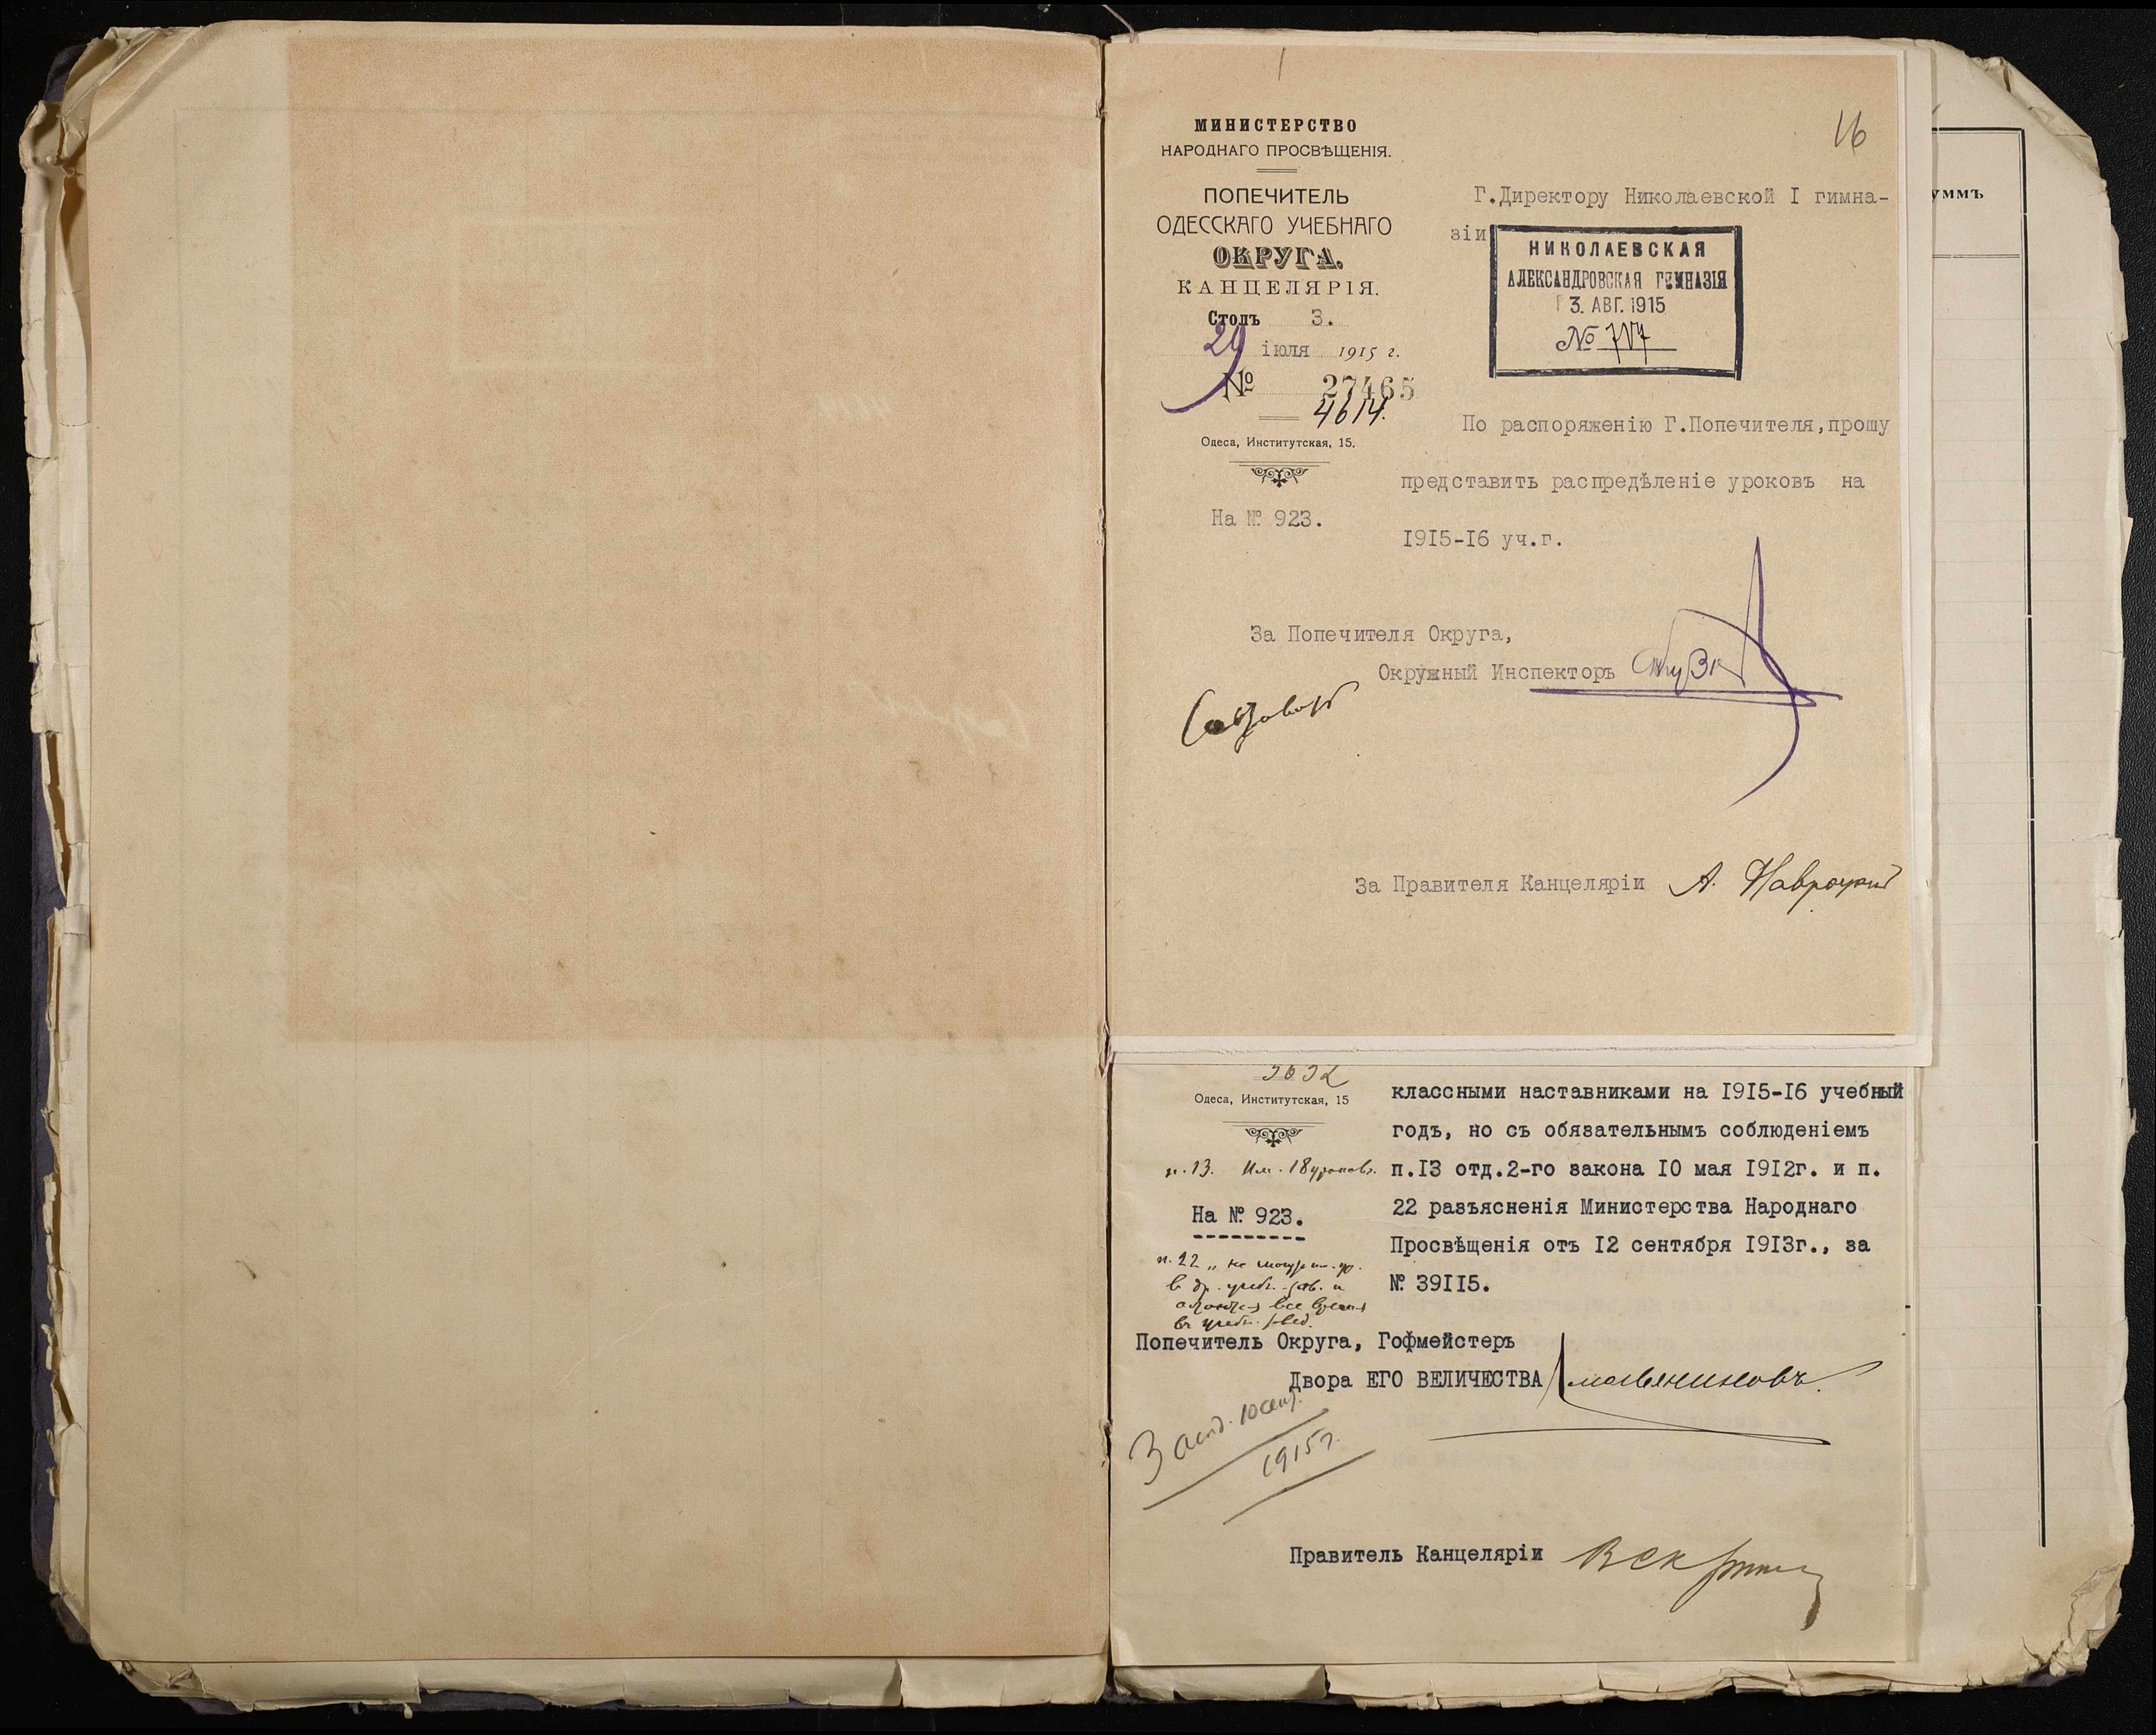 16
МИНИСТЕРСТВО
НАРОДНАГО ПРОСВѢЩЕНІЯ.
ПОПЕЧИТЕЛЬ
ОДЕССКАГО УЧЕБНАГО
ОКРУГА.
КАНЦЕЛЯРІЯ.
Столъ 3.
29 іюля 1915 г.
№ 27465
4614.
Одеса, Институтская, 15.
На № 923.
Г.Директору Николаевской I гимна-
зіи
НИКОЛАЕВСКАЯ
АЛЕКСАНДРОВСКАЯ ГИМНАЗІЯ
3. АВГ. 1915
№
По распоряженію Г.Попечителя,прошу
представить распредѣленіе уроковъ на
I9I5-I6 уч.г.
За Попечителя Округа,
Окружный Инспекторъ
За Правителя Канцеляріи А. Навроцкій
умъ
Одеса, Институтская, 15
п.13. Им. 18 уроковъ.
На № 923.
п.22 „ не
классными наставниками на I9I5-I6 учебный
годъ, но съ обязательнымъ соблюденіемъ
п.I3 отд.2-го закона I0 мая I9I2г. и п.
22 разъясненія Министерства Народнаго
Просвѣщенія отъ I2 сентября I9I3г., за
№ 39II5.
Попечитель Округа, Гофмейстеръ
Двора ЕГО ВЕЛИЧЕСТВА
1915г.
Правитель Канцеляріи